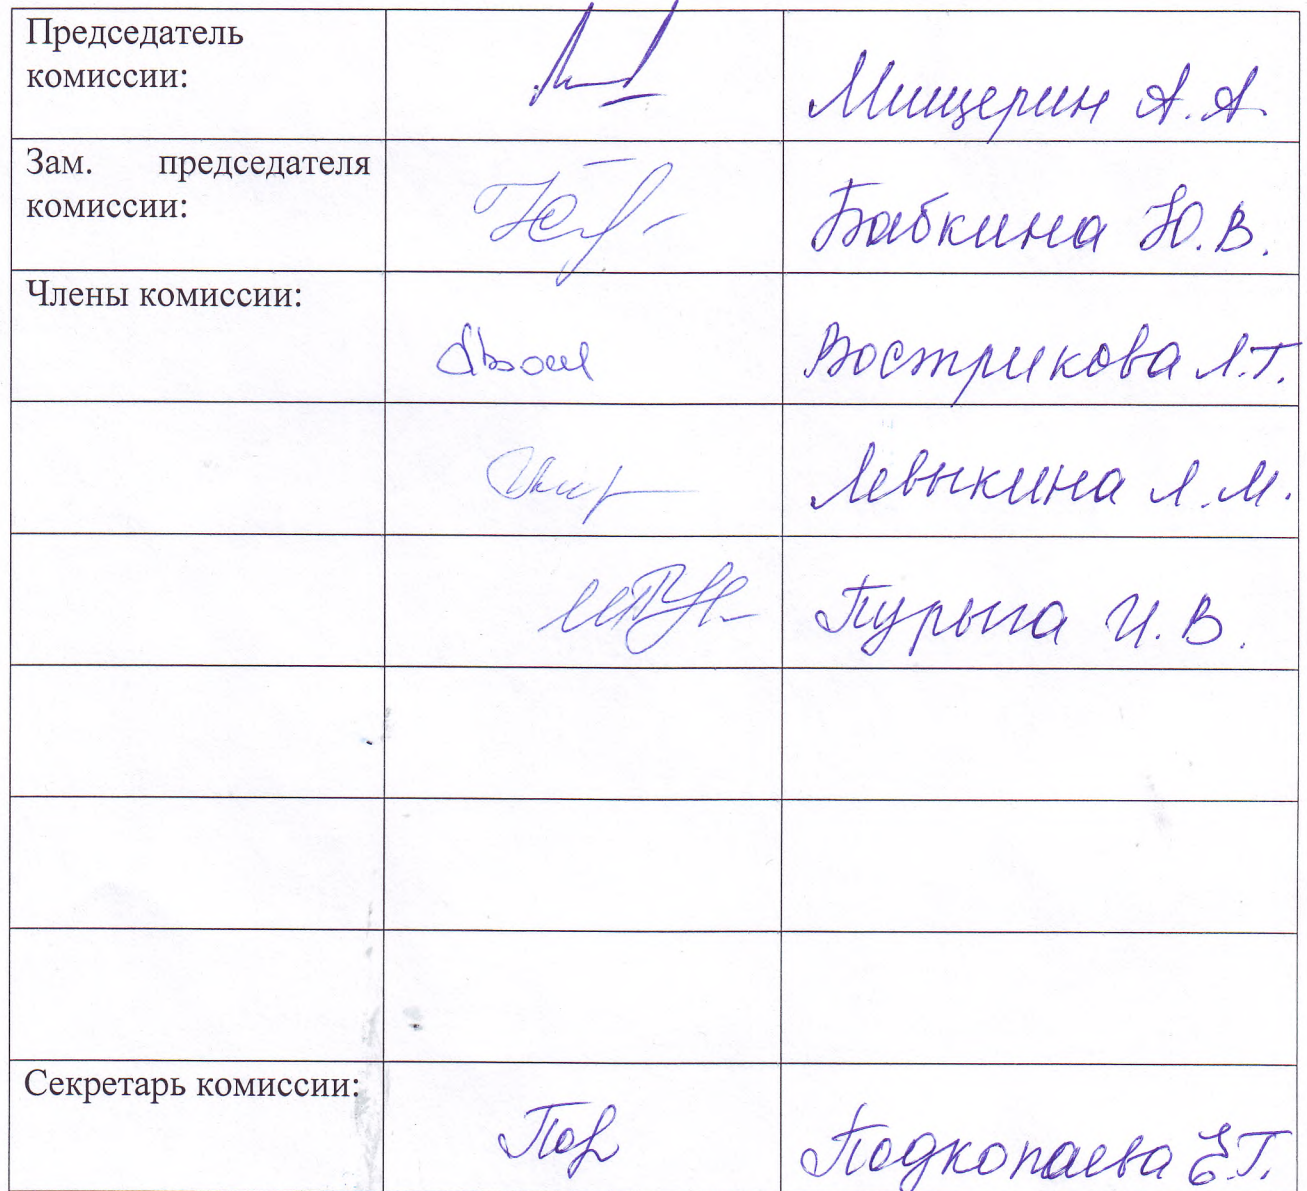 Председатель
комиссии:
Мищерин А.А.
Зам. председателя
комиссии:
Бабкина Ю.В.
Члены комиссии:
Вострикова Л.Т.
Левыкина Л.М.
Пурыга И.В.
Секретарь комиссии:
Подкопаева Е.Г.